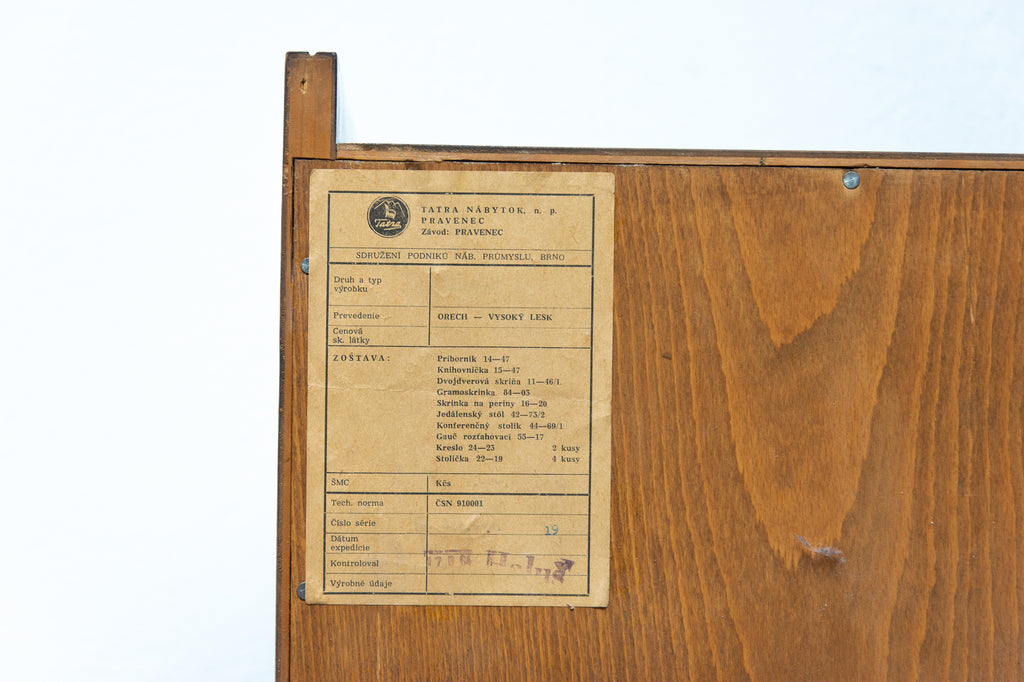 Tatra
TATRA NÁBYTOK, n. p.
PRAVENEC
Závod: PRAVENEC
SDRUŽENÍ PODNIKŮ NÁB. PRŮMYSLU, BRNO
Druh a typ
výrobku
Prevedenie ORECH — VYSOKÝ LESK
Cenová
sk. látky
ZOSTAVA:
Príborník 14—47
Knihovnička 15—47
Dvojdverová skriňa 11—46/1
Gramoskrinka 84—03
Skrinka na periny 16—20
Jedálenský stôl 42—73/2
Konferenčný stolík 44—69/1
Gauč rozťahovací 55—17
Kreslo 24—23 2 kusy
Stolička 22—19 4 kusy
ŠMC Kčs
Tech. norma ČSN 910001
Číslo série
19
Dátum
expedície
Kontroloval
Výrobné údaje